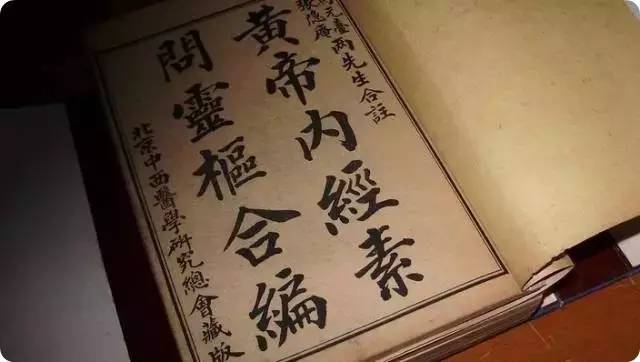 元臺張隱庵兩先生合註
黃帝內經素
問靈樞合編
北京中西醫學研究總會藏版